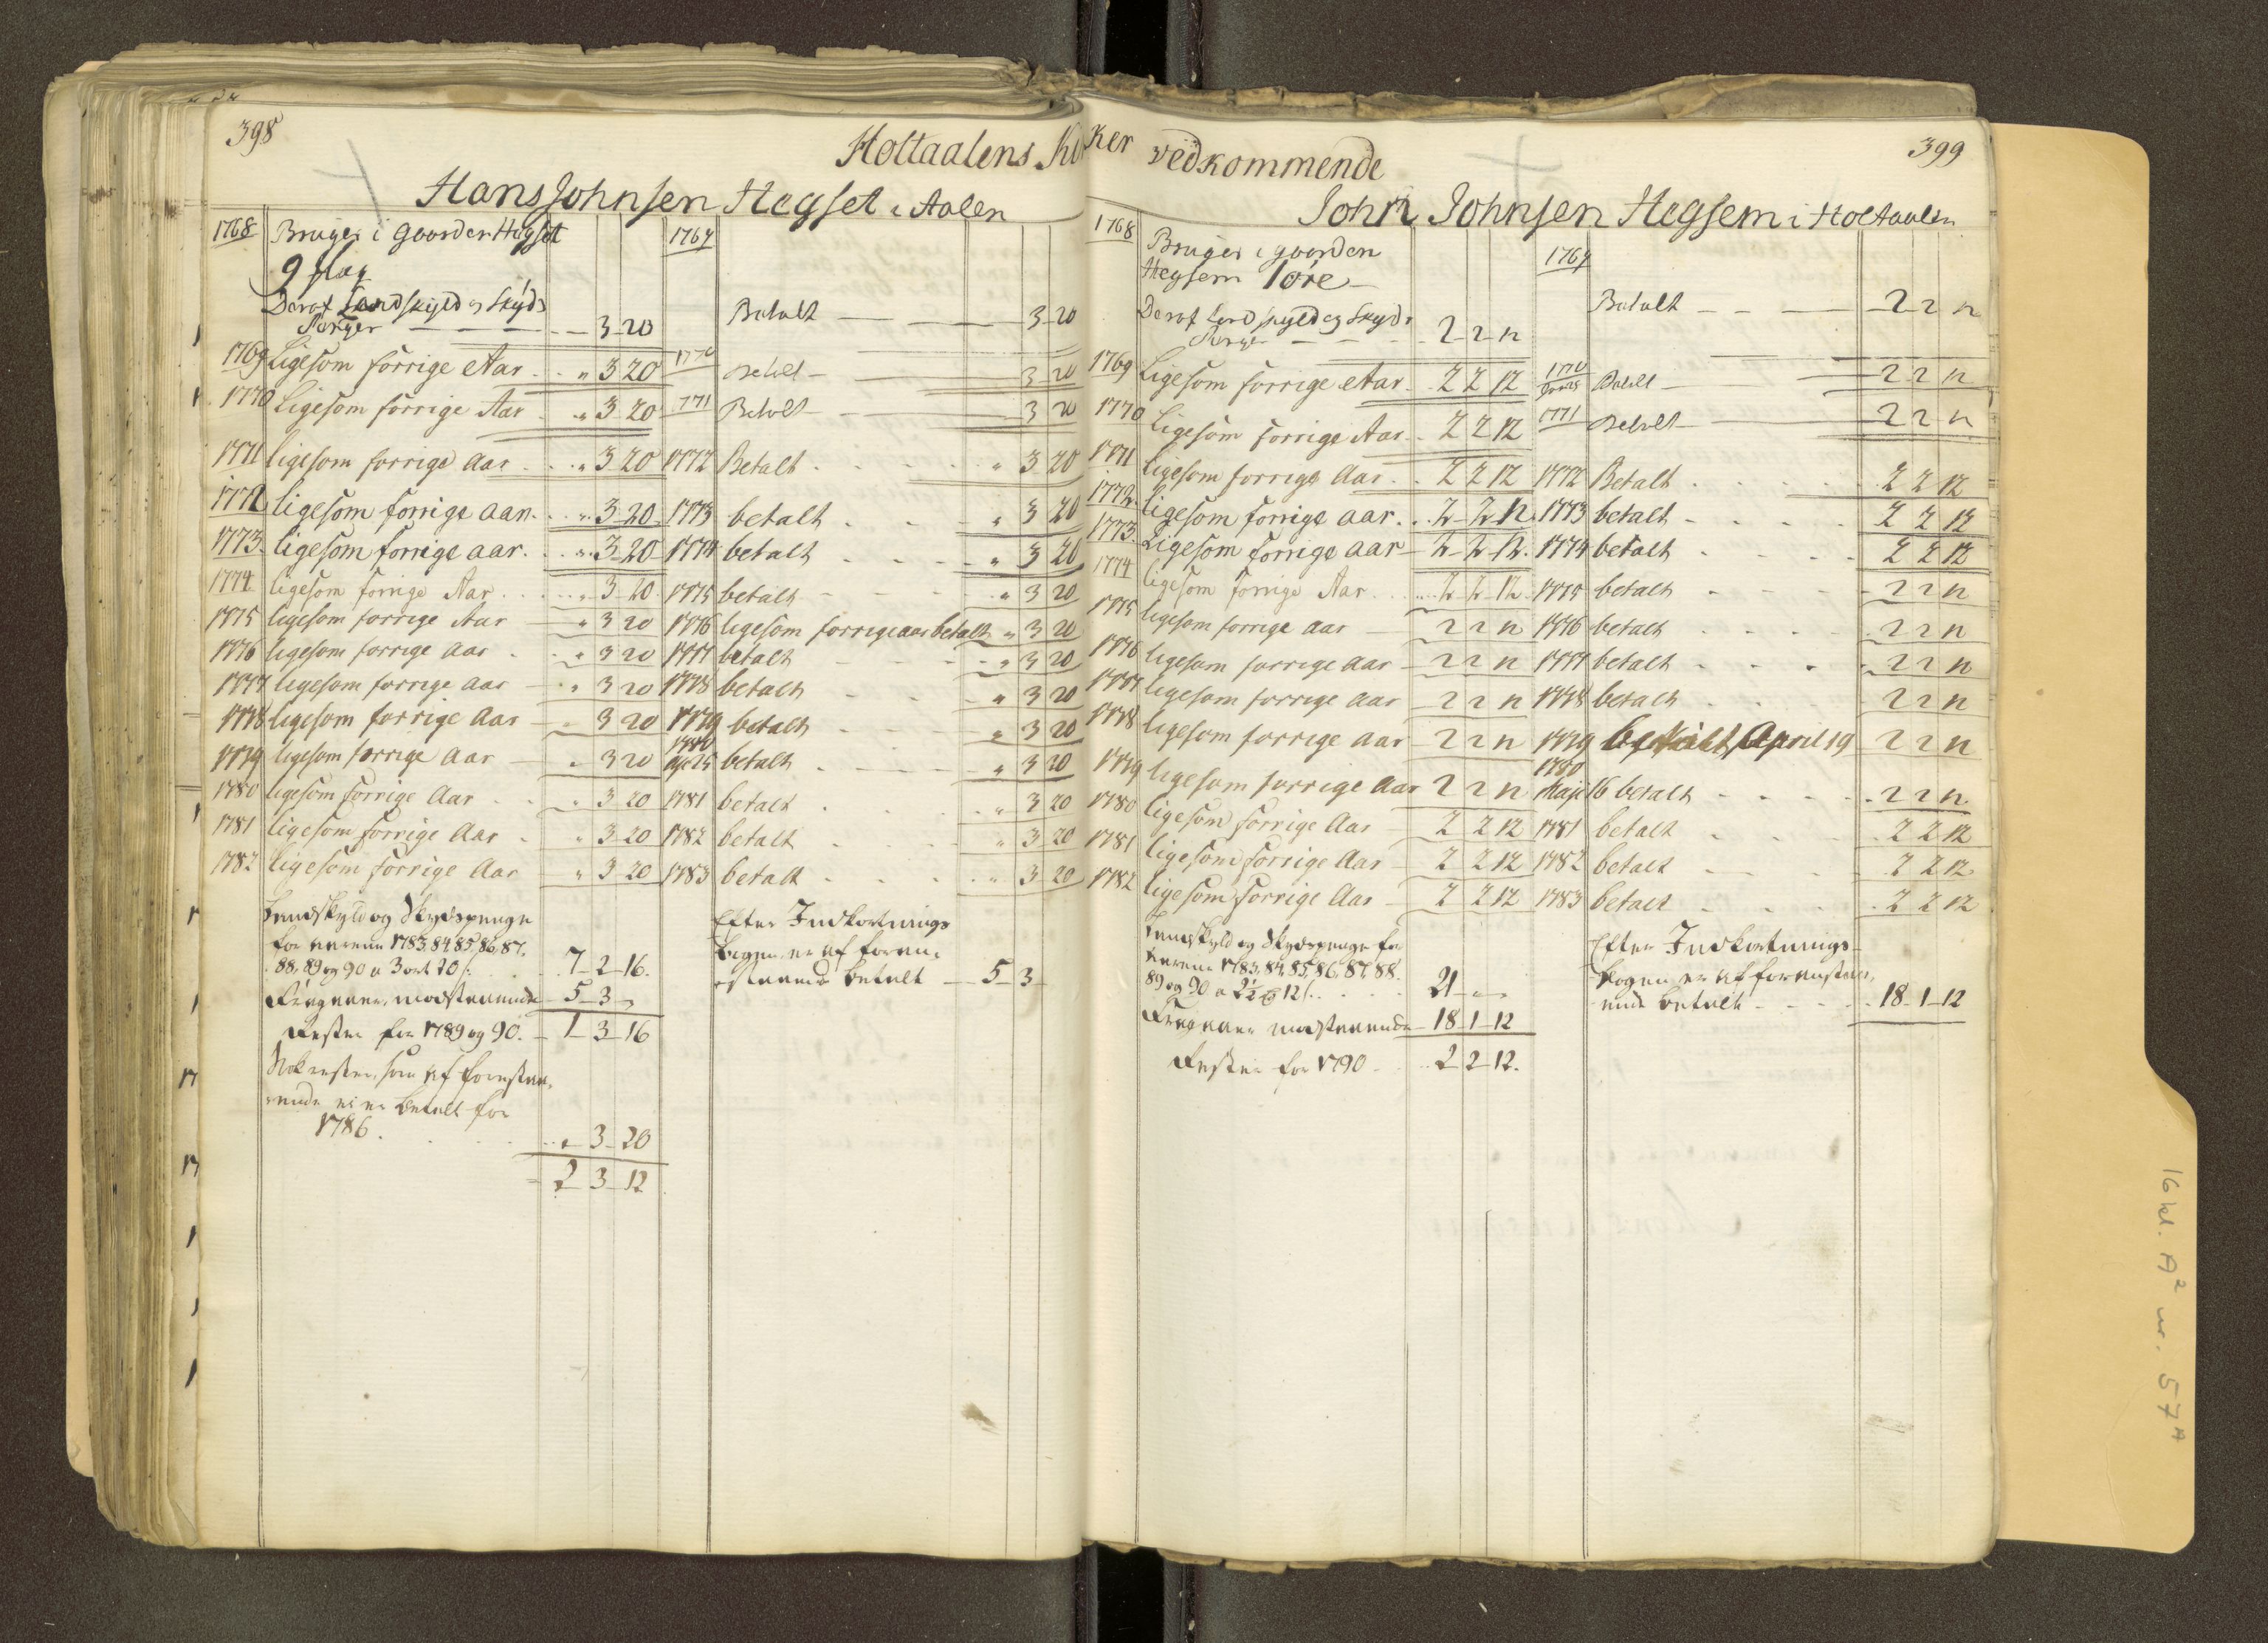 398
Holtaalens Kirker vedkommende
399
Hans Johnsen Hegset i Aalen
1768 Bruger i gaarden Hegset
9 slag
Deraf Landskyld og Skyds
Penger — 3 20
1769 Betalt — 3 20
1769 Ligesom forrige Aar „ 3 20 1770 Betalt — 3 20
1770 Ligesom forrige Aar „ 3 20 1771 Betalt — 3 20
1771 ligesom forrige Aar „ 3 20 1772 Betalt „ 3 20
1772 ligesom forrige aar „ 3 20 1773 betalt „ 3 20
1773 ligesom forrige aar „ 3 20 1774 betalt „ 3 20
1774 ligesom forrige Aar „ 3 20 1775 betalt „ 3 20
1775 ligesom forrige Aar „ 3 20 1776 ligesom forrige aar betalt „ 3 20
1776 ligesom forrige aar „ 3 20 1777 betalt „ 3 20
1777 ligesom forrige aar „ 3 20 1778 betalt „ 3 20
1778 ligesom forrige Aar „ 3 20 1779 betalt „ 3 20
1779 ligesom forrige Aar „ 3 20 1780 25 betalt „ 3 20
1780 ligesom forrige Aar „ 3 20 1781 betalt „ 3 20
1781 ligesom forrige Aar „ 3 20 1782 betalt „ 3 20
1782 ligesom forrige Aar „ 3 20 1783 betalt „ 3 20
Landskyld og Skydspenge
for aarene 1783, 84, 85, 86, 87,
88, 89 og 90 a 3 ort 20 s. 7 2 16.
Fragaaer, modstaaende 5 3 „
Rester for 1789 og 90. 1 3 16
Nok rester, som af forestaa-
ende ei er betalt for
1786. „ 3 20
2 3 12
Efter Indkortnings
bogen er af foran-
staaende betalt 5 3
John Johnsen Hegsem i Holtaalen
1768 Bruger i gaarden
Hegsem 1 øre
Deraf Landskyld og Skyds
Penger — 2 2 12
1769 Betalt — 2 2 12
1769 Ligesom forrige Aar 2 2 12 1770 Betalt — 2 2 12
1770 Ligesom forrige Aar 2 2 12 1771 Betalt — 2 2 12
1771 ligesom forrige Aar 2 2 12 1772 Betalt 2 2 12
1772 ligesom forrige aar 2 2 12 1773 betalt 2 2 12
1773 Ligesom forrige aar 2 2 12 1774 betalt 2 2 12
1774 ligesom forrige Aar 2 2 12 1775 betalt 2 2 12
1775 ligesom forrige aar 2 2 12 1776 betalt 2 2 12
1776 ligesom forrige aar 2 2 12 1777 betalt 2 2 12
1777 ligesom forrige aar 2 2 12 1778 betalt 2 2 12
1778 ligesom forrige aar 2 2 12 1779 betalt April 19 2 2 12
1779 ligesom forrige aar 2 2 12 1780 Maji 16 betalt 2 2 12
1780 ligesom forrige Aar 2 2 12 1781 betalt 2 2 12
1781 ligesom forrige Aar 2 2 12 1782 betalt 2 2 12
1782 ligesom forrige Aar 2 2 12 1783 betalt 2 2 12
Landskyld og Skydspenge for
aarene 1783, 84, 85, 86, 87, 88.
89 og 90 a 2 12 s. 21 „ „
Fragaaer modstaaende 18 1 12
Rester for 1790 2 2 12.
Efter Indkortnings-
bogen er af foranstaa-
ende betalt 18 1 12
16 kl. A2 nr. 57A